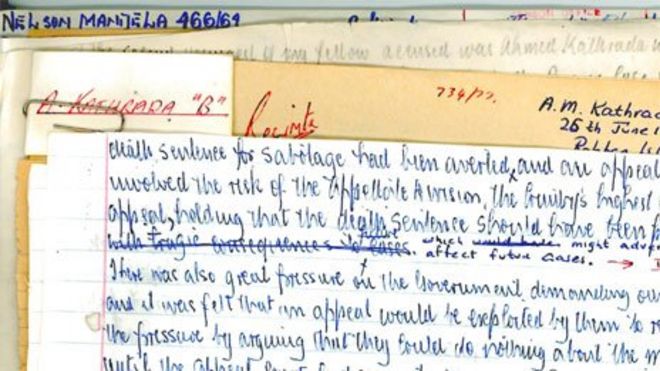 NELSON MANDELA 466/64
of my fellow accused was Ahmed Kathrada
A. KATHRADA "B"
734/77.
A.M. Kathrad
25th June 1
death sentence for sabotage had been averted, and an appeal
involved the risk of the Appellate Division, the country's highest
appeal, holding that the death sentence should have been
with tragic consequences to cases. which would have might adv
affect future cases.
There was also great pressure on the Government demanding ou
and it was felt that an appeal would be exploited by them to re
the pressure by arguing that they could do nothing about the m
until the appeal